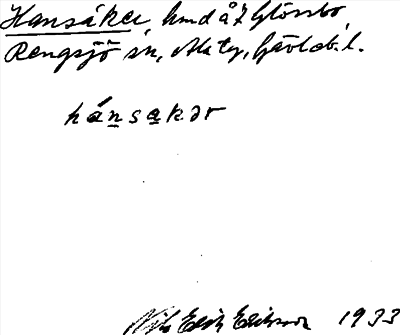 Hansåker, hmd å 7 Glössbo,
Rengsjö sn, Ala tg, Gävleb. l.
hánsakər
Nils Erik Eriksson 1933